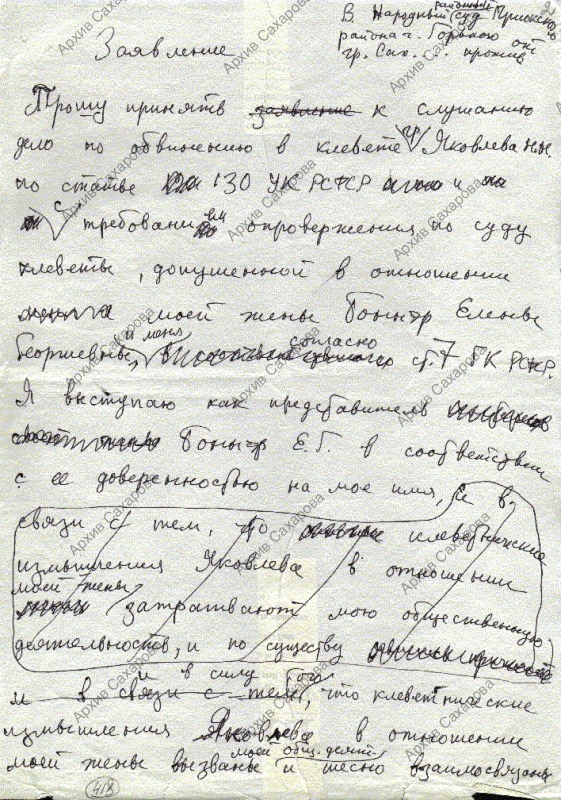 В Народный районный суд Приокского
района г. Горького от
гр. Сах. прожив
Заявление
Прошу принять заявление к слушанию
дело по обвинению в клевете гр. Яковлева Н.Н.
по статье 130 УК РСФСР и
с требованием опровержения по суду
клеветы, допущенной в отношении
моей жены Боннэр Елены
Георгиевны, и меня согласно ст. 7 ГК РСФСР.
Я выступаю как представитель
Боннэр Е.Г. в соответствии
с ее доверенностью на мое имя, и в
связи с тем, что клеветнические
измышления Яковлева в отношении
моей жены затрагивают мою общественную
деятельность, и по существу
и в связи с тем, и в силу того, что клеветнические
измышления Яковлева в отношении
моей жены вызваны моей общ. деят. и тесно взаимосвязаны
418
Архив Сахарова